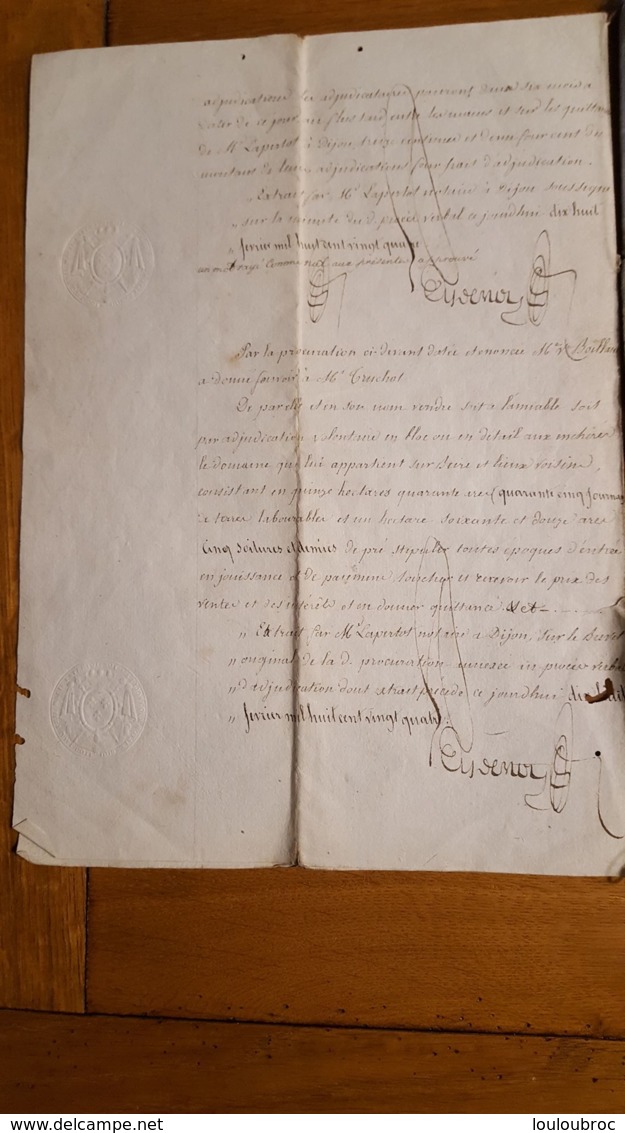 adjudications les adjudicataires pourront dans six mois a
dater de ce jour au plus tard entre les mains et sur les quittances
de Me Lapertot à Dijon, treize centimes et demi pour cent du
montant de leurs adjudications pour frait d'adjudication.
" Extrait par Me Lapertot notaire à Dijon soussigné
" sur la minute du d. procès verbal ce jourdhui dix huit
" fevrier mil huit cent vingt quatre
un mot rayé comme nul aux présentes approuvé
Par la procuration ci devant datée et énoncée Boillaud
a donné pouvoir à Me Truchot
De par elle et en son nom vendre soit a lamiable soit
par adjudication volontaire en bloc ou en detail aux enchères
le domaine qui lui appartient sur et lieux voisins,
consistant en quinze hectares quarante ares (quarante cinq journaux
terres labourables et un hectare soixante et douze ares
Cinq soitures et demies de pré stipuler toutes époques d'entrée
en jouissance & de paiemens toucher et recevoir le prix des
ventes et des intérêts et en donner quittance &et
" Extrait par Me Lapertot notaire a Dijon, sur le Brevet
" original de la d. procuration annexée au procès verbal
" d'adjudication dont extrait précède ce jourdhui dix huit
" fevrier mil huit cent vingt quatre.
louloubroc